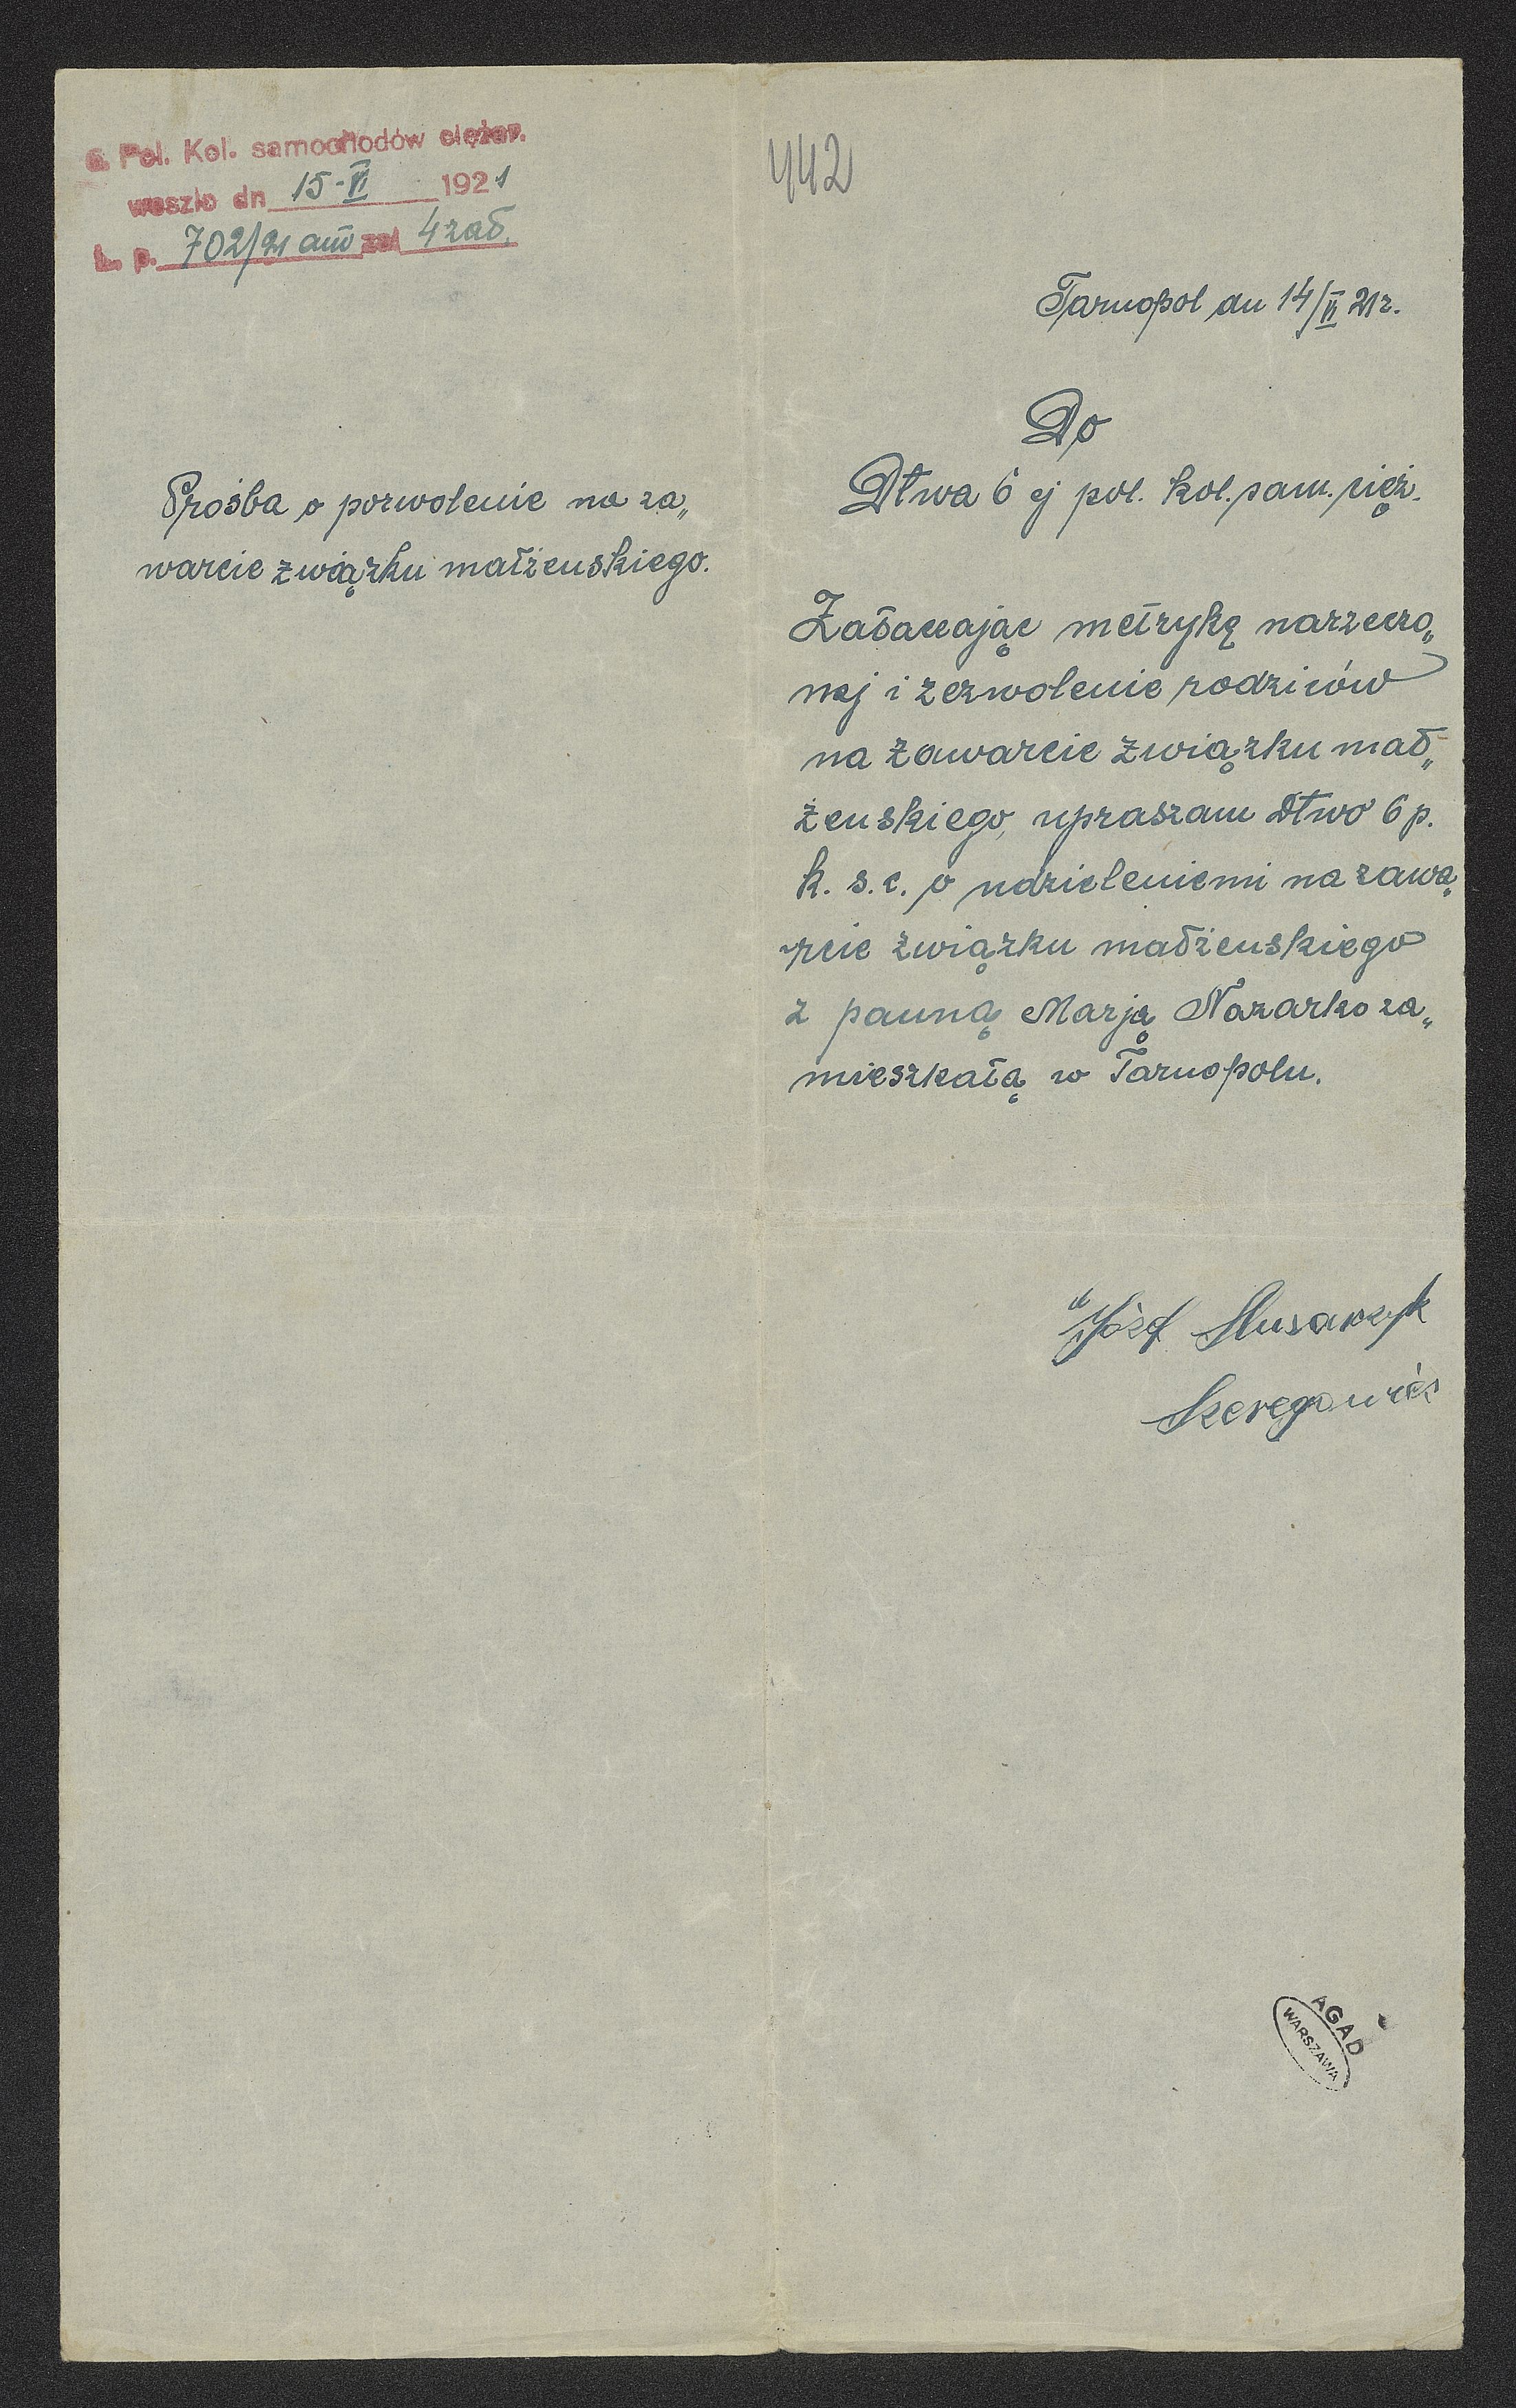 6. Pol. Kol. samochodów ciężar.
weszło dn 15-VI 1921
L. p. 702/21 zał 4 zał.
442
Tarnopol dn 14/VI 21r.
Do
Dtwa 6 ej pol. kol. sam. cięż.
Prośba o pozwolenie na za„
warcie związku małżenskiego.
Załanczając metrykę narzeczo„
nej i zezwolenie rodziców
na zawarcie związku mał„
żenskiego, upraszam Dtwo 6 p.
k. s. c. o udzielenie mi na zawa„
rcie związku małżenskiego
z panną Marją Nazarko za„
mieszkałą w Tarnopolu.
Józef Slusarczyk
Szeregowiec
AGAD
WARSZAWA